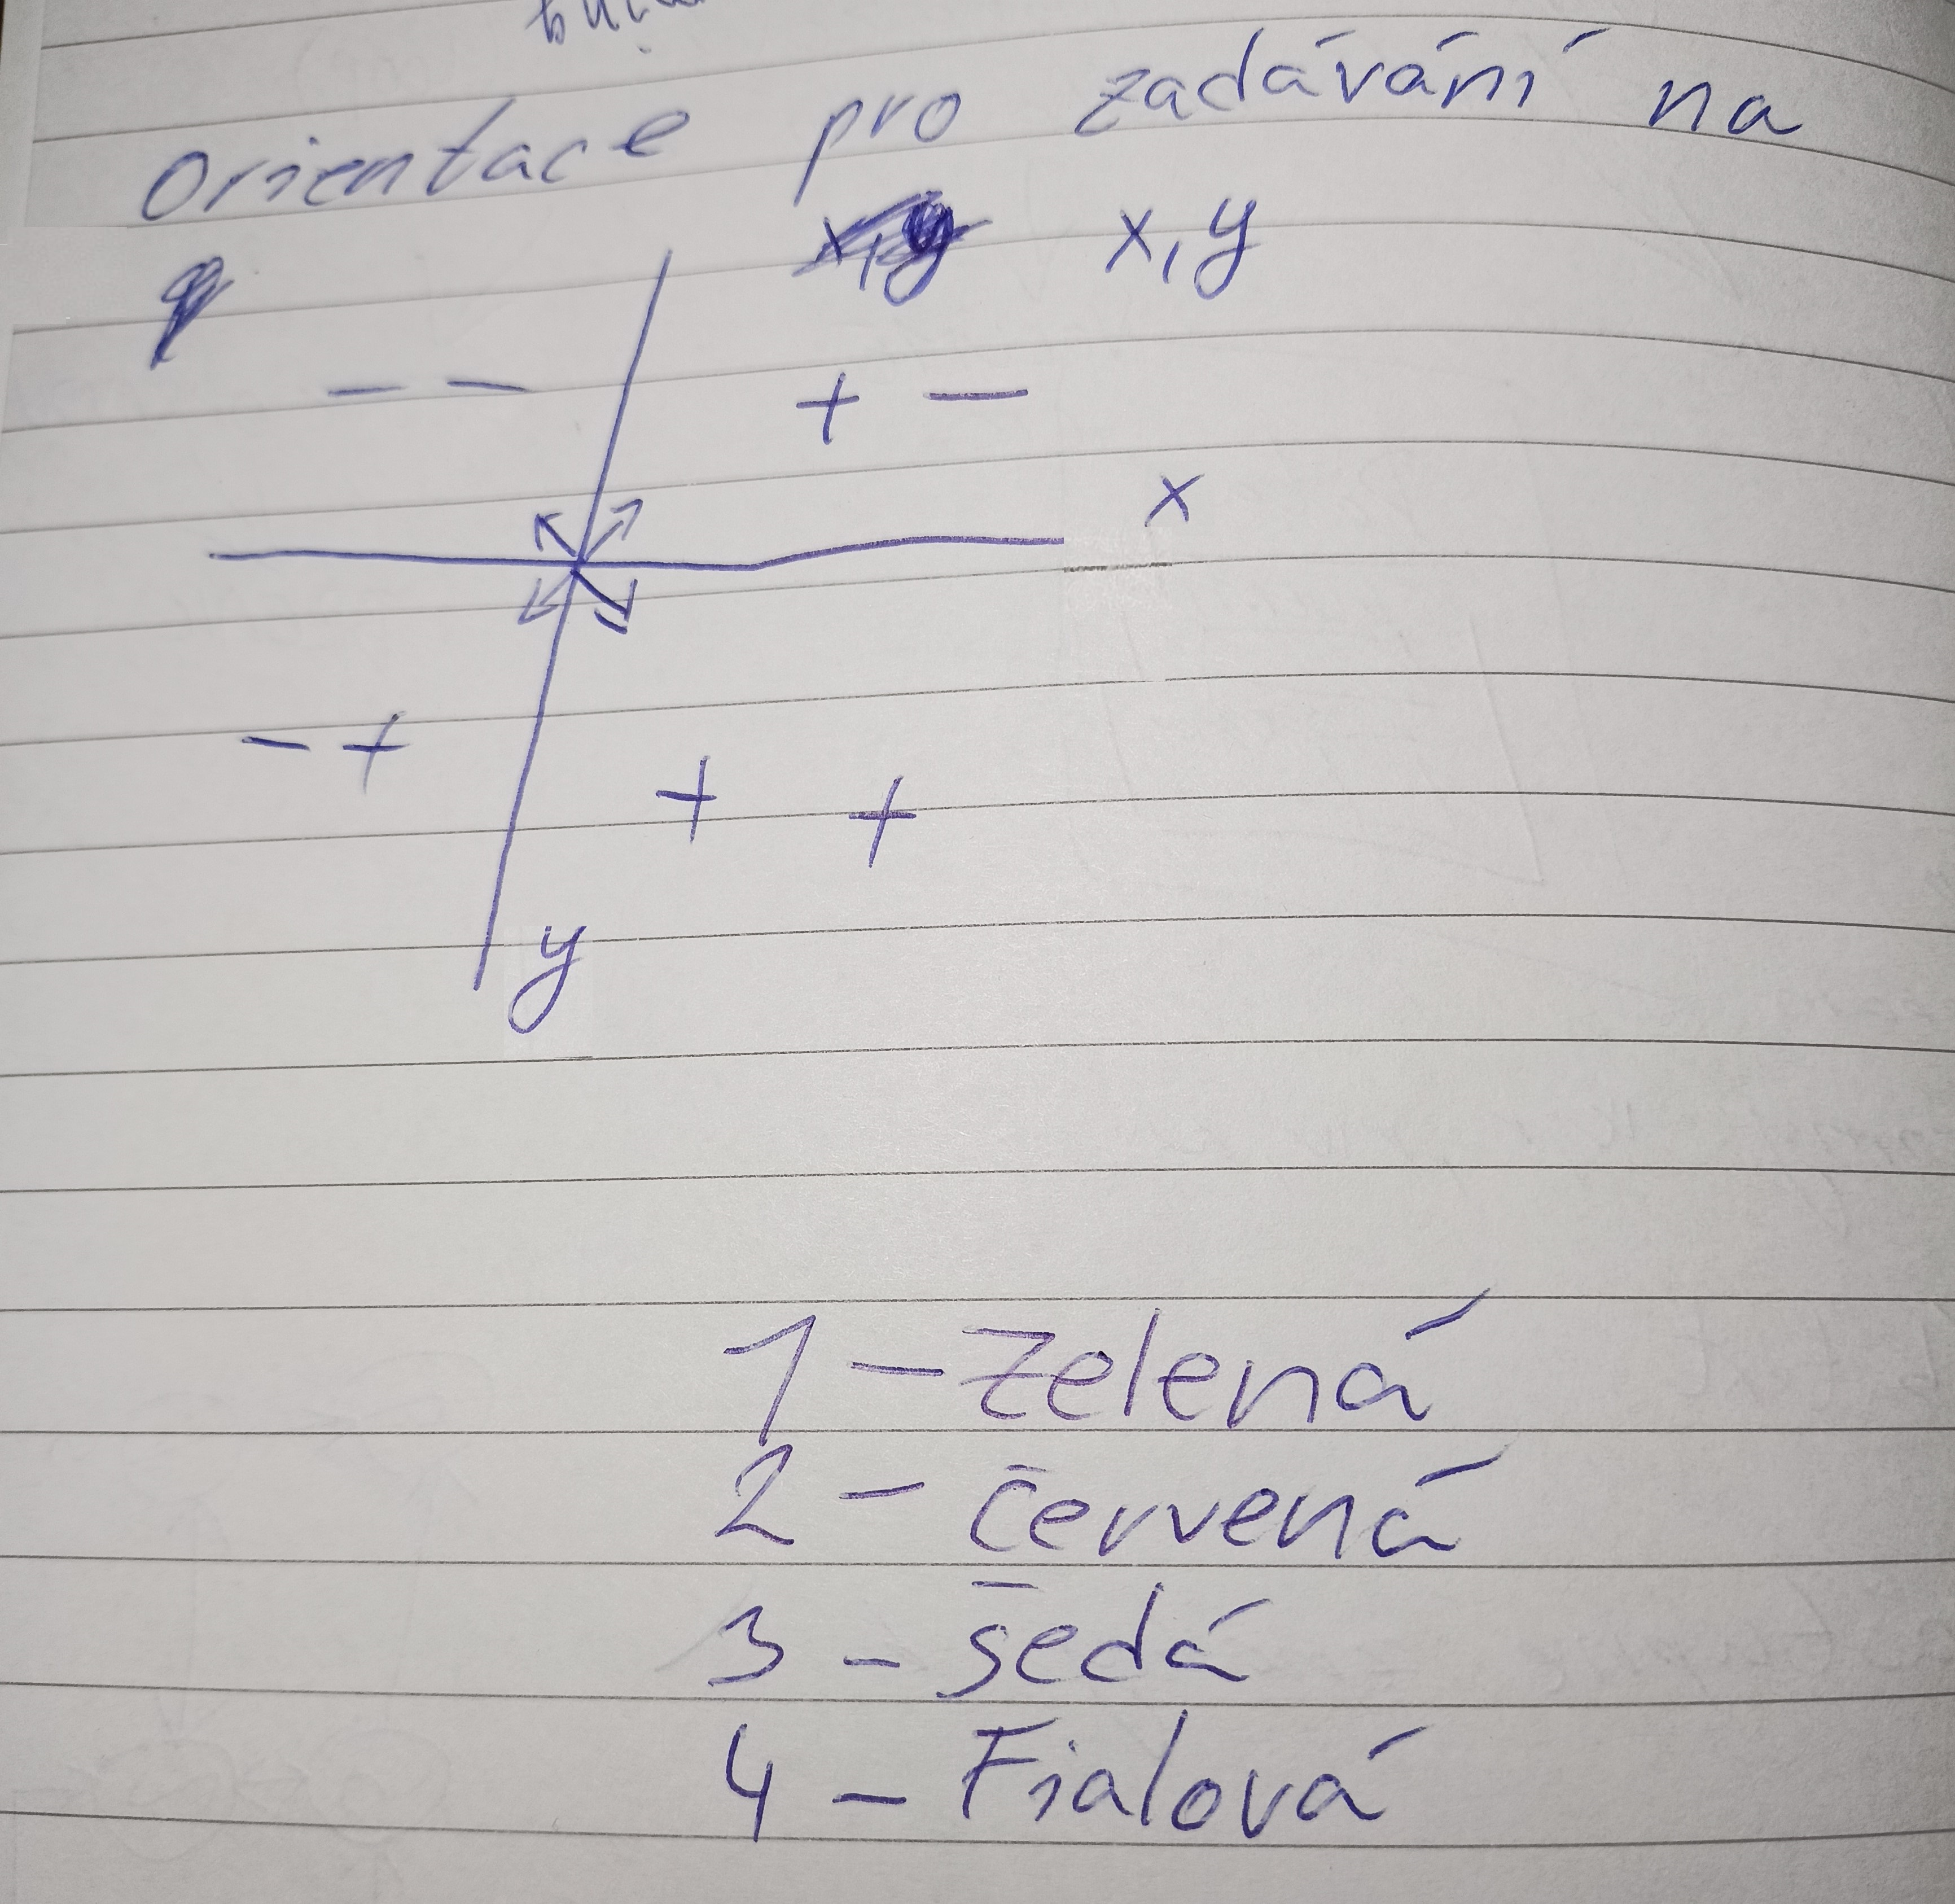 Orientace pro zadávání na
x,y
- -
+ -
x
- +
+ +
y
1 - Zelená
2 - červená
3 - šedá
4 - Fialová